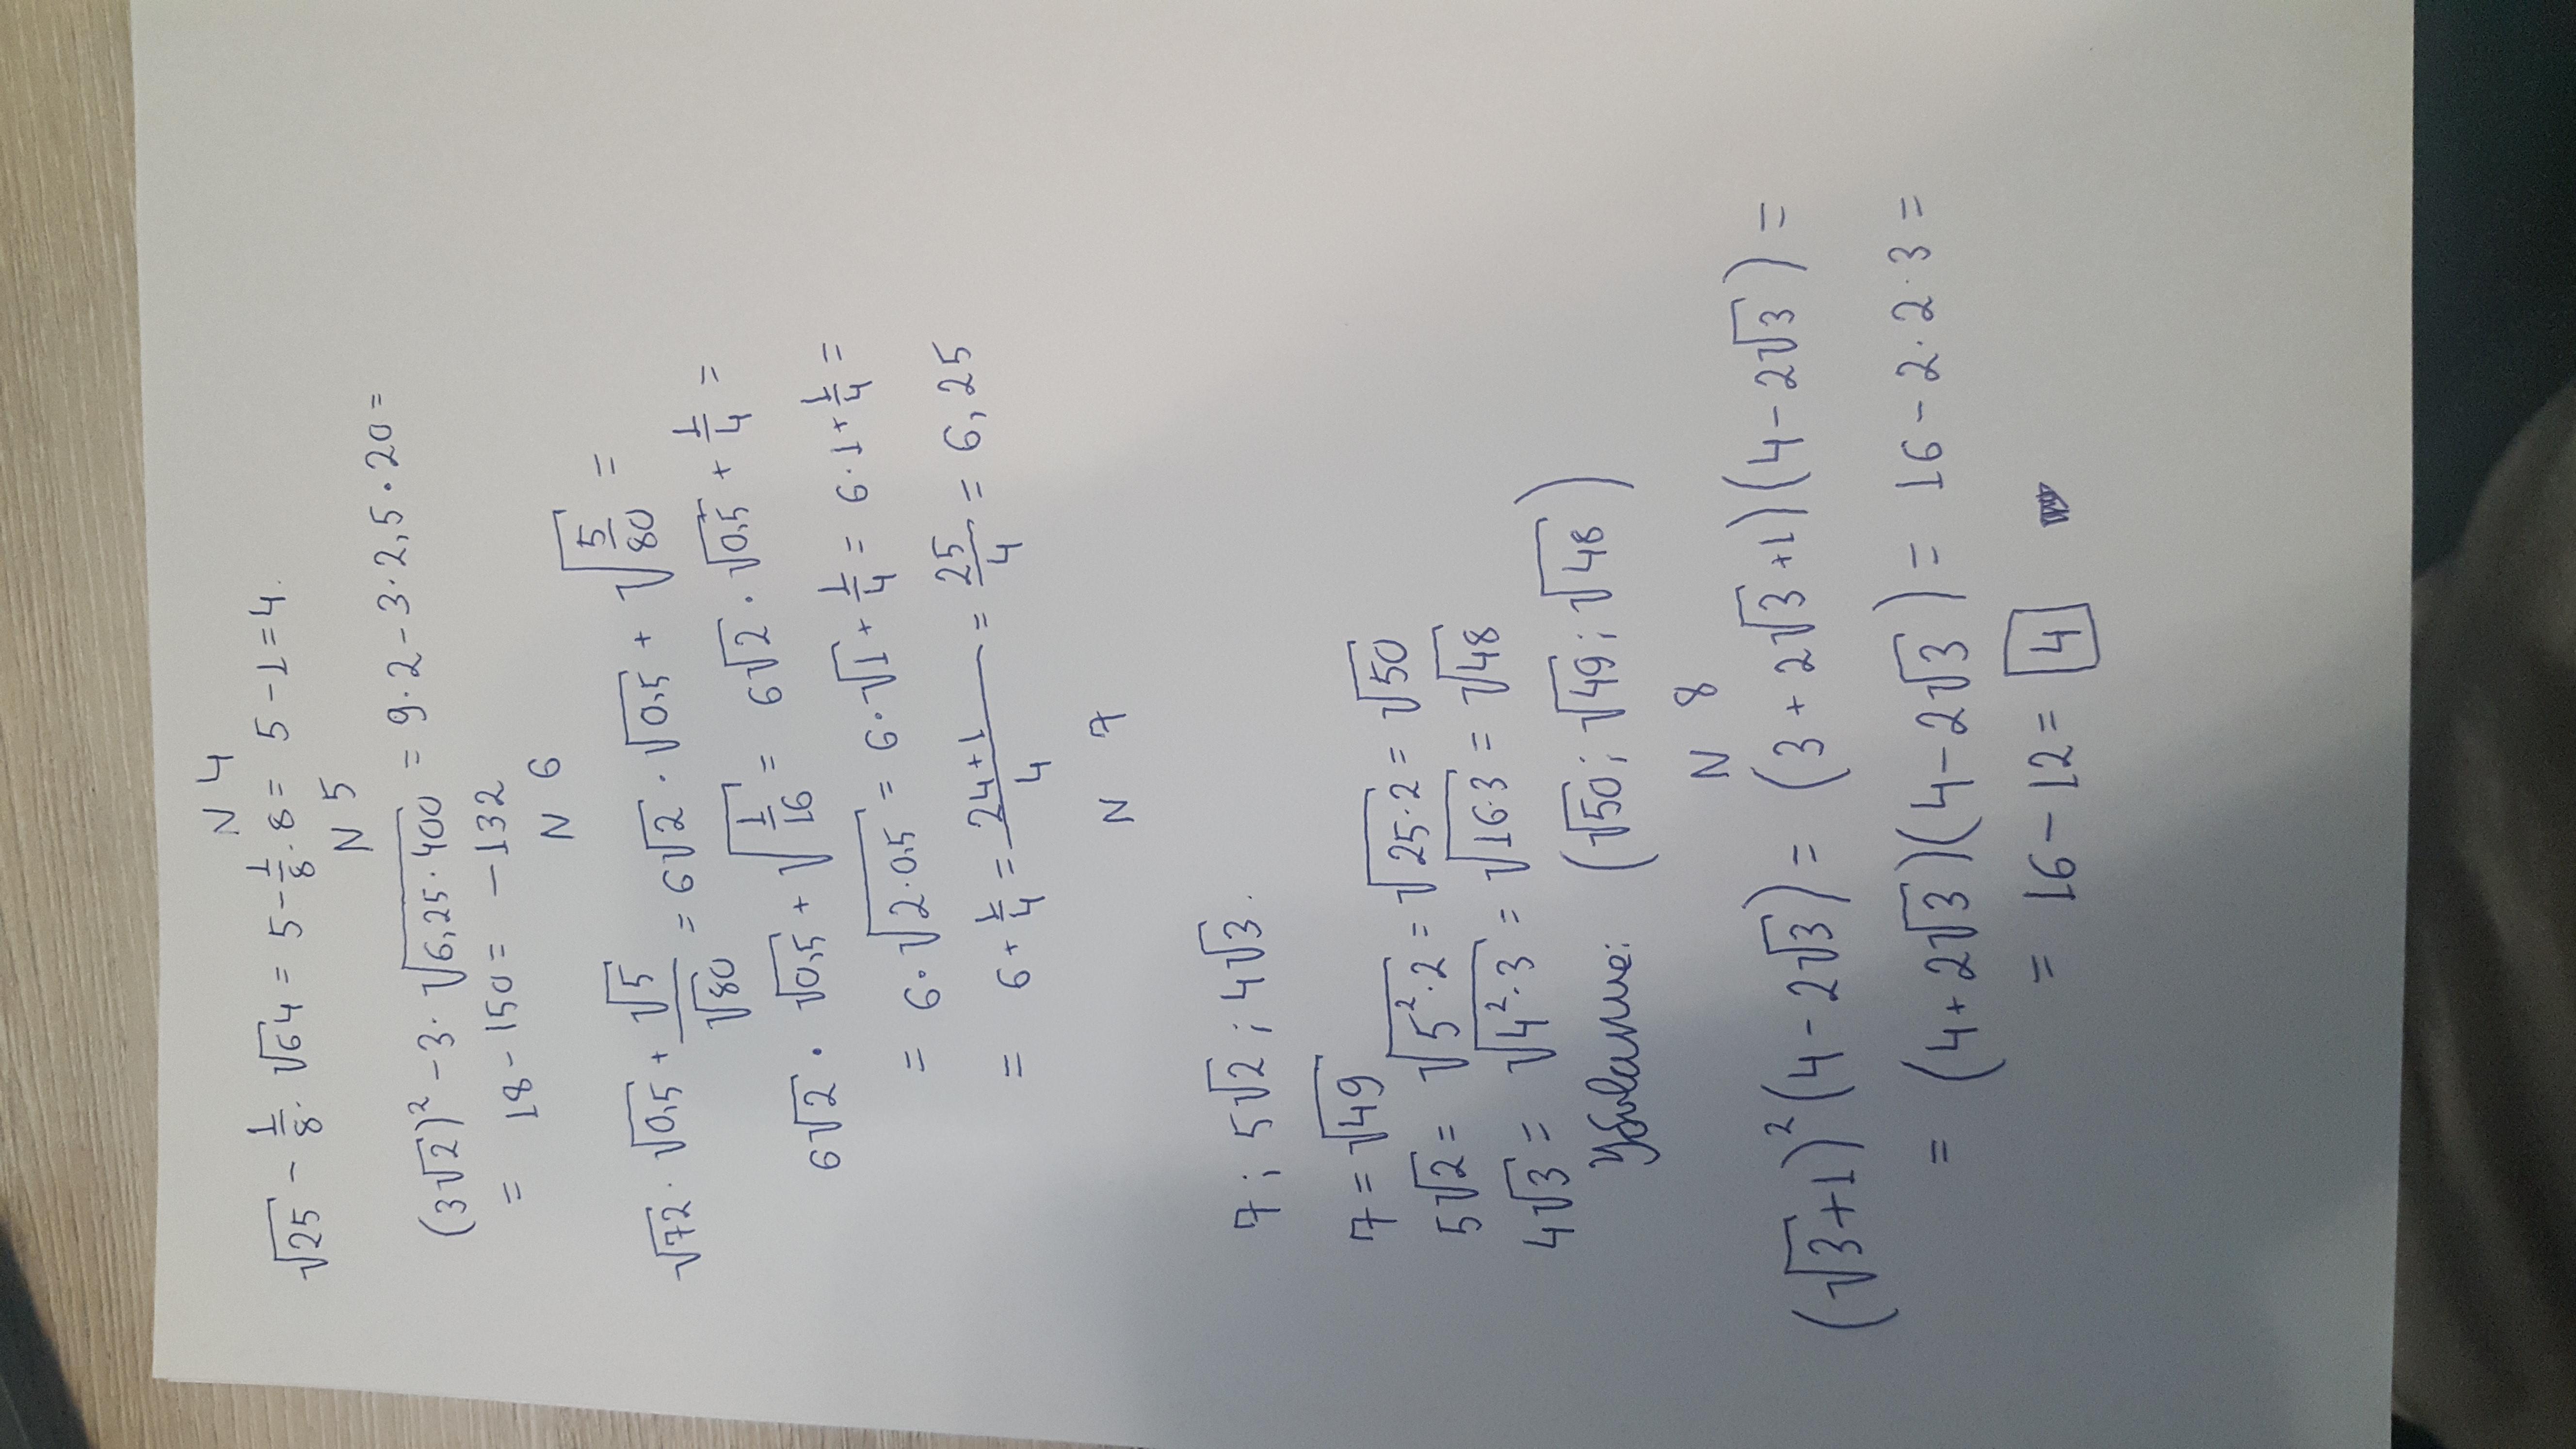 N 4
√25 - 1/8 · √64 = 5 - 1/8 · 8 = 5 - 1 = 4.
N 5
(3√2)² - 3 · √6,25 · 400 = 9 · 2 - 3 · 2,5 · 20 =
= 18 - 150 = -132
N 6
√72 · √0,5 + √5/√80 = 6√2 · √0,5 + √5/80 =
6√2 · √0,5 + √1/16 = 6√2 · √0,5 + 1/4 =
= 6 · √2 · 0,5 = 6 · √1 + 1/4 = 6 · 1 + 1/4 =
= 6 + 1/4 = 24 + 1/4 = 25/4 = 6,25
N 7
7 ; 5√2 ; 4√3.
7 = √49
5√2 = √5² · 2 = √25 · 2 = √50
4√3 = √4² · 3 = √16 · 3 = √48
Убывание: (√50 ; √49 ; √48)
N 8
(√3 + 1)² (4 - 2√3) = (3 + 2√3 + 1)(4 - 2√3) =
= (4 + 2√3)(4 - 2√3) = 16 - 2 · 2 · 3 =
= 16 - 12 = 4